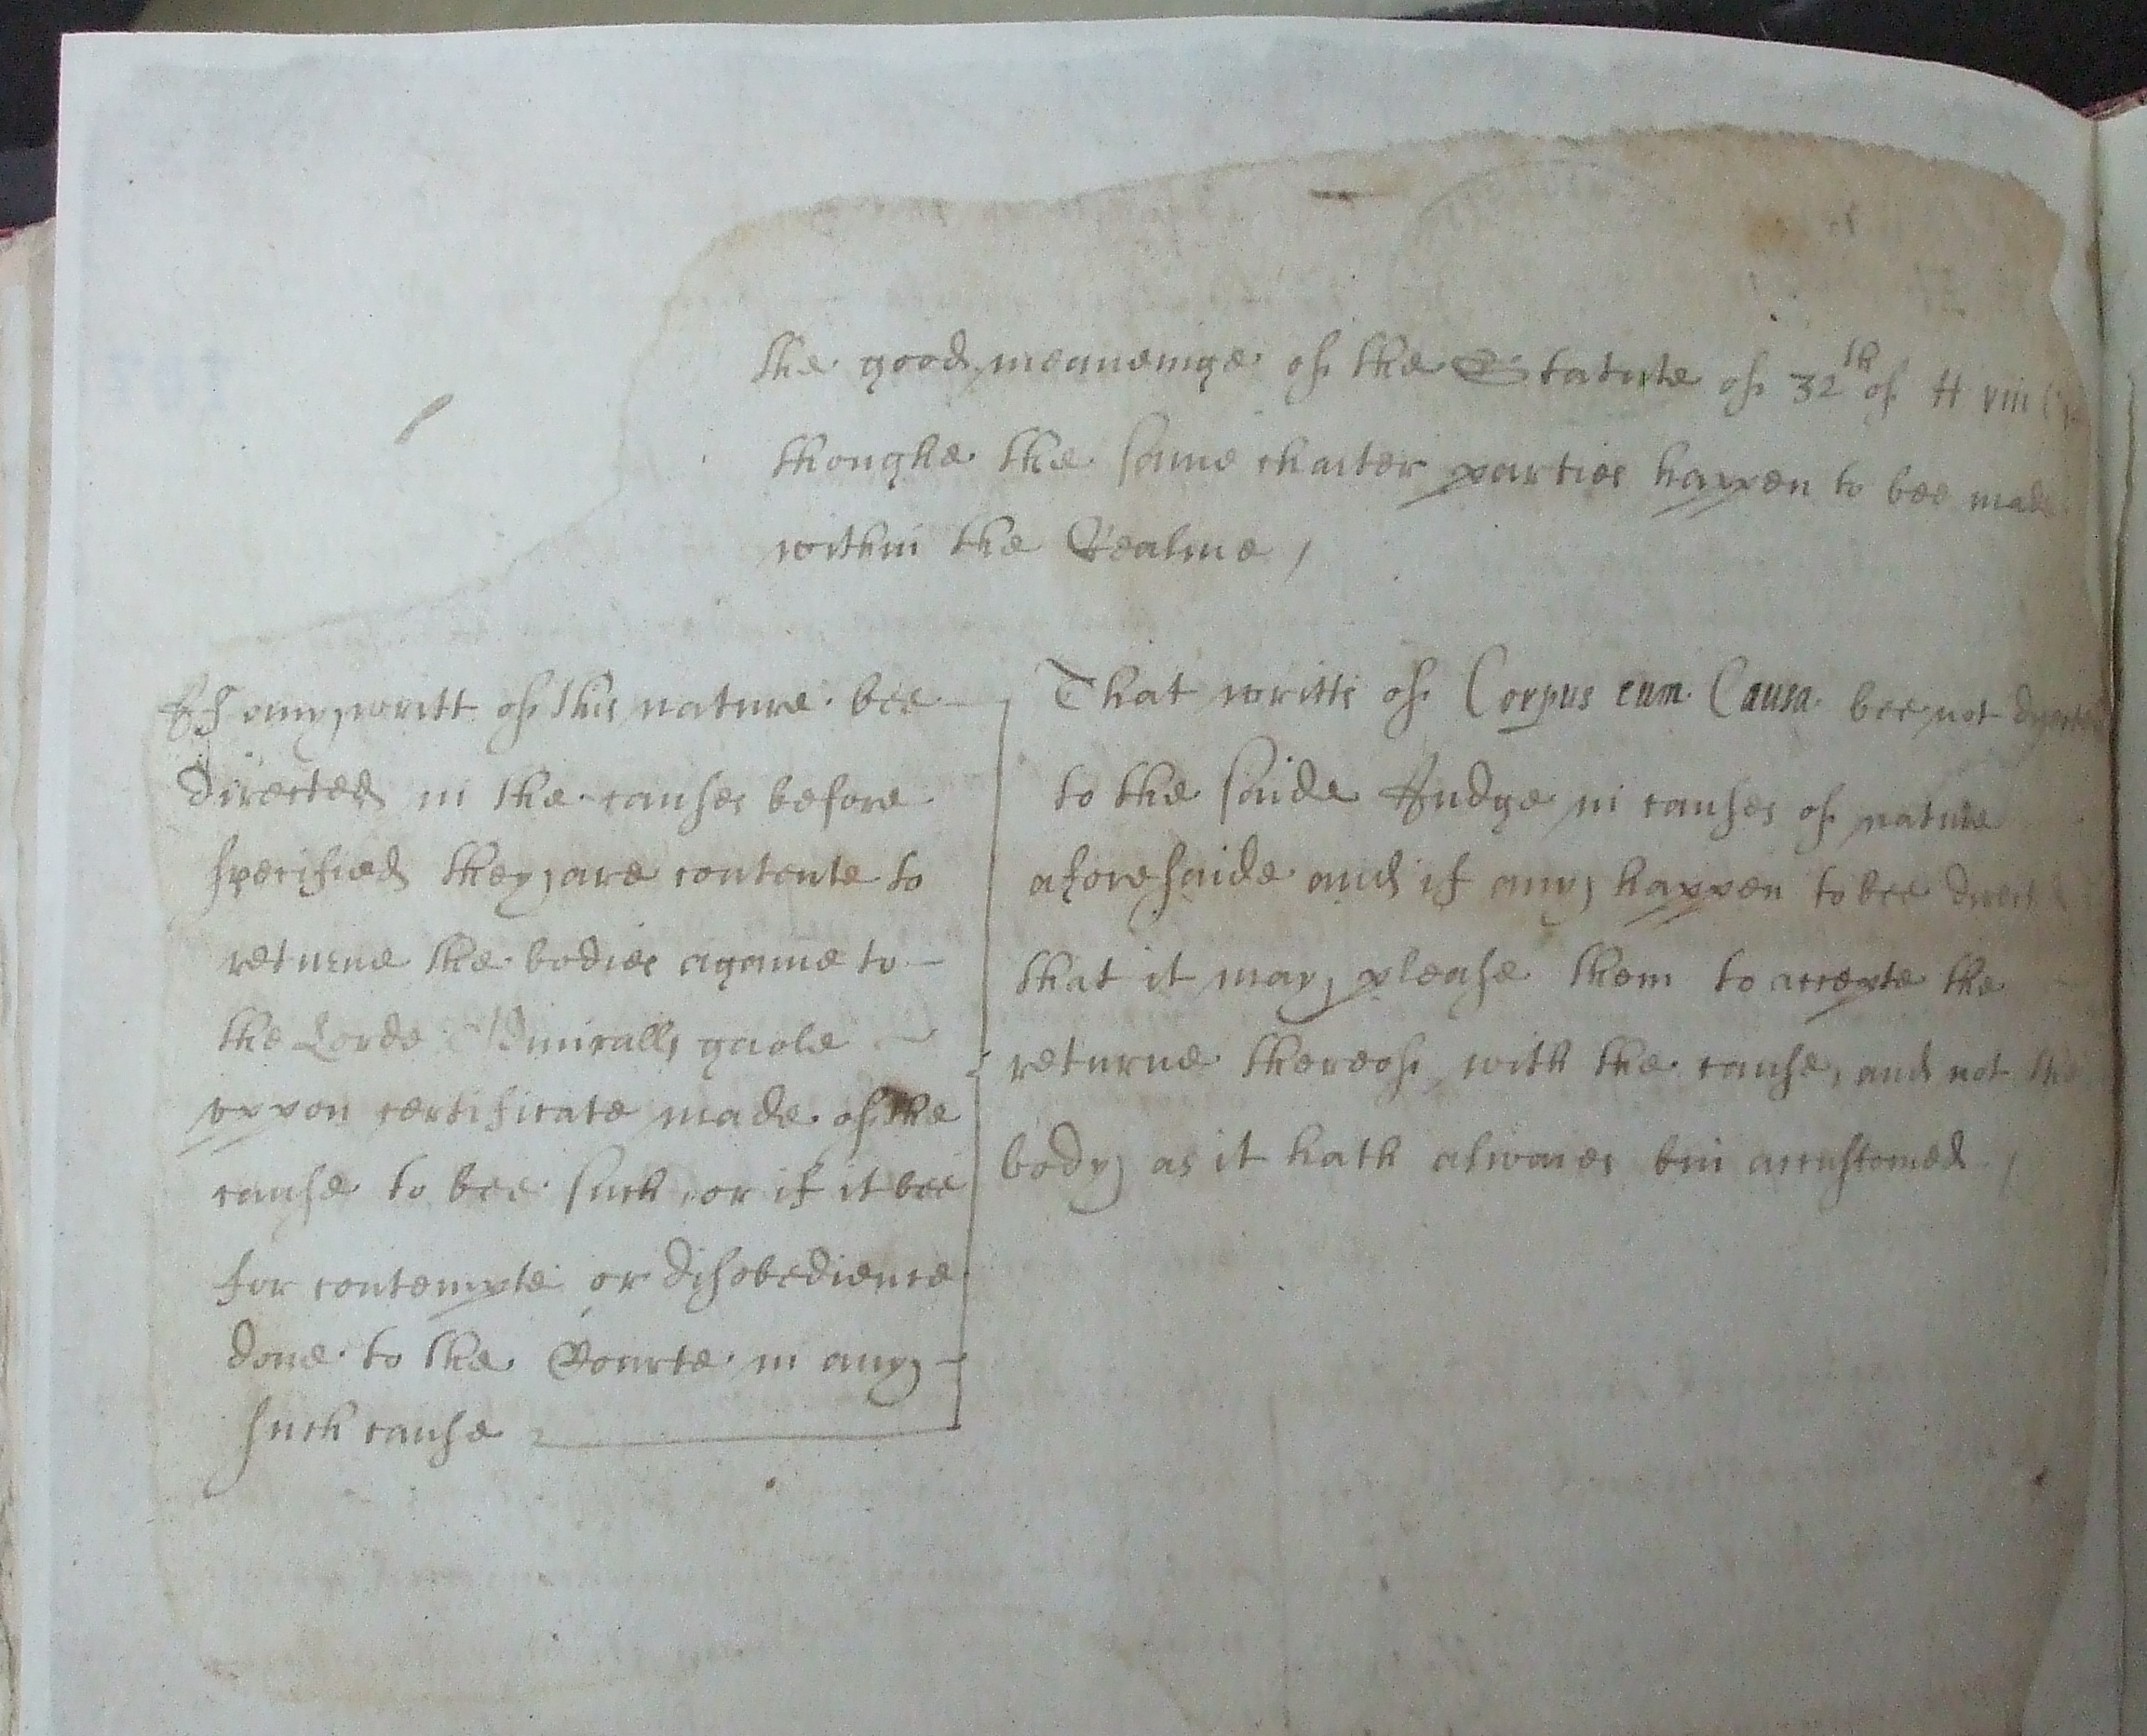 the good meaneinge of the Statute of 32th of H viii
thoughe the same charter parties happen to bee made
within the Realme,
If any writt of this nature bee
directed in the causes before
specified they are contente to
returne the bodies againe to
the Lorde Admiralls gaole
uppon certificate made of the
cause to bee such, or if it bee
for contempte or disobedience
done to the Courte in any
such cause
That writts of Corpus cum Causa bee not directed
to the saide Judge in causes of nature
aforesaide and if any happen to bee direct
that it may please them to accepte the
returne thereof with the cause, and not the
body as it hath alwaies bin accustomed,